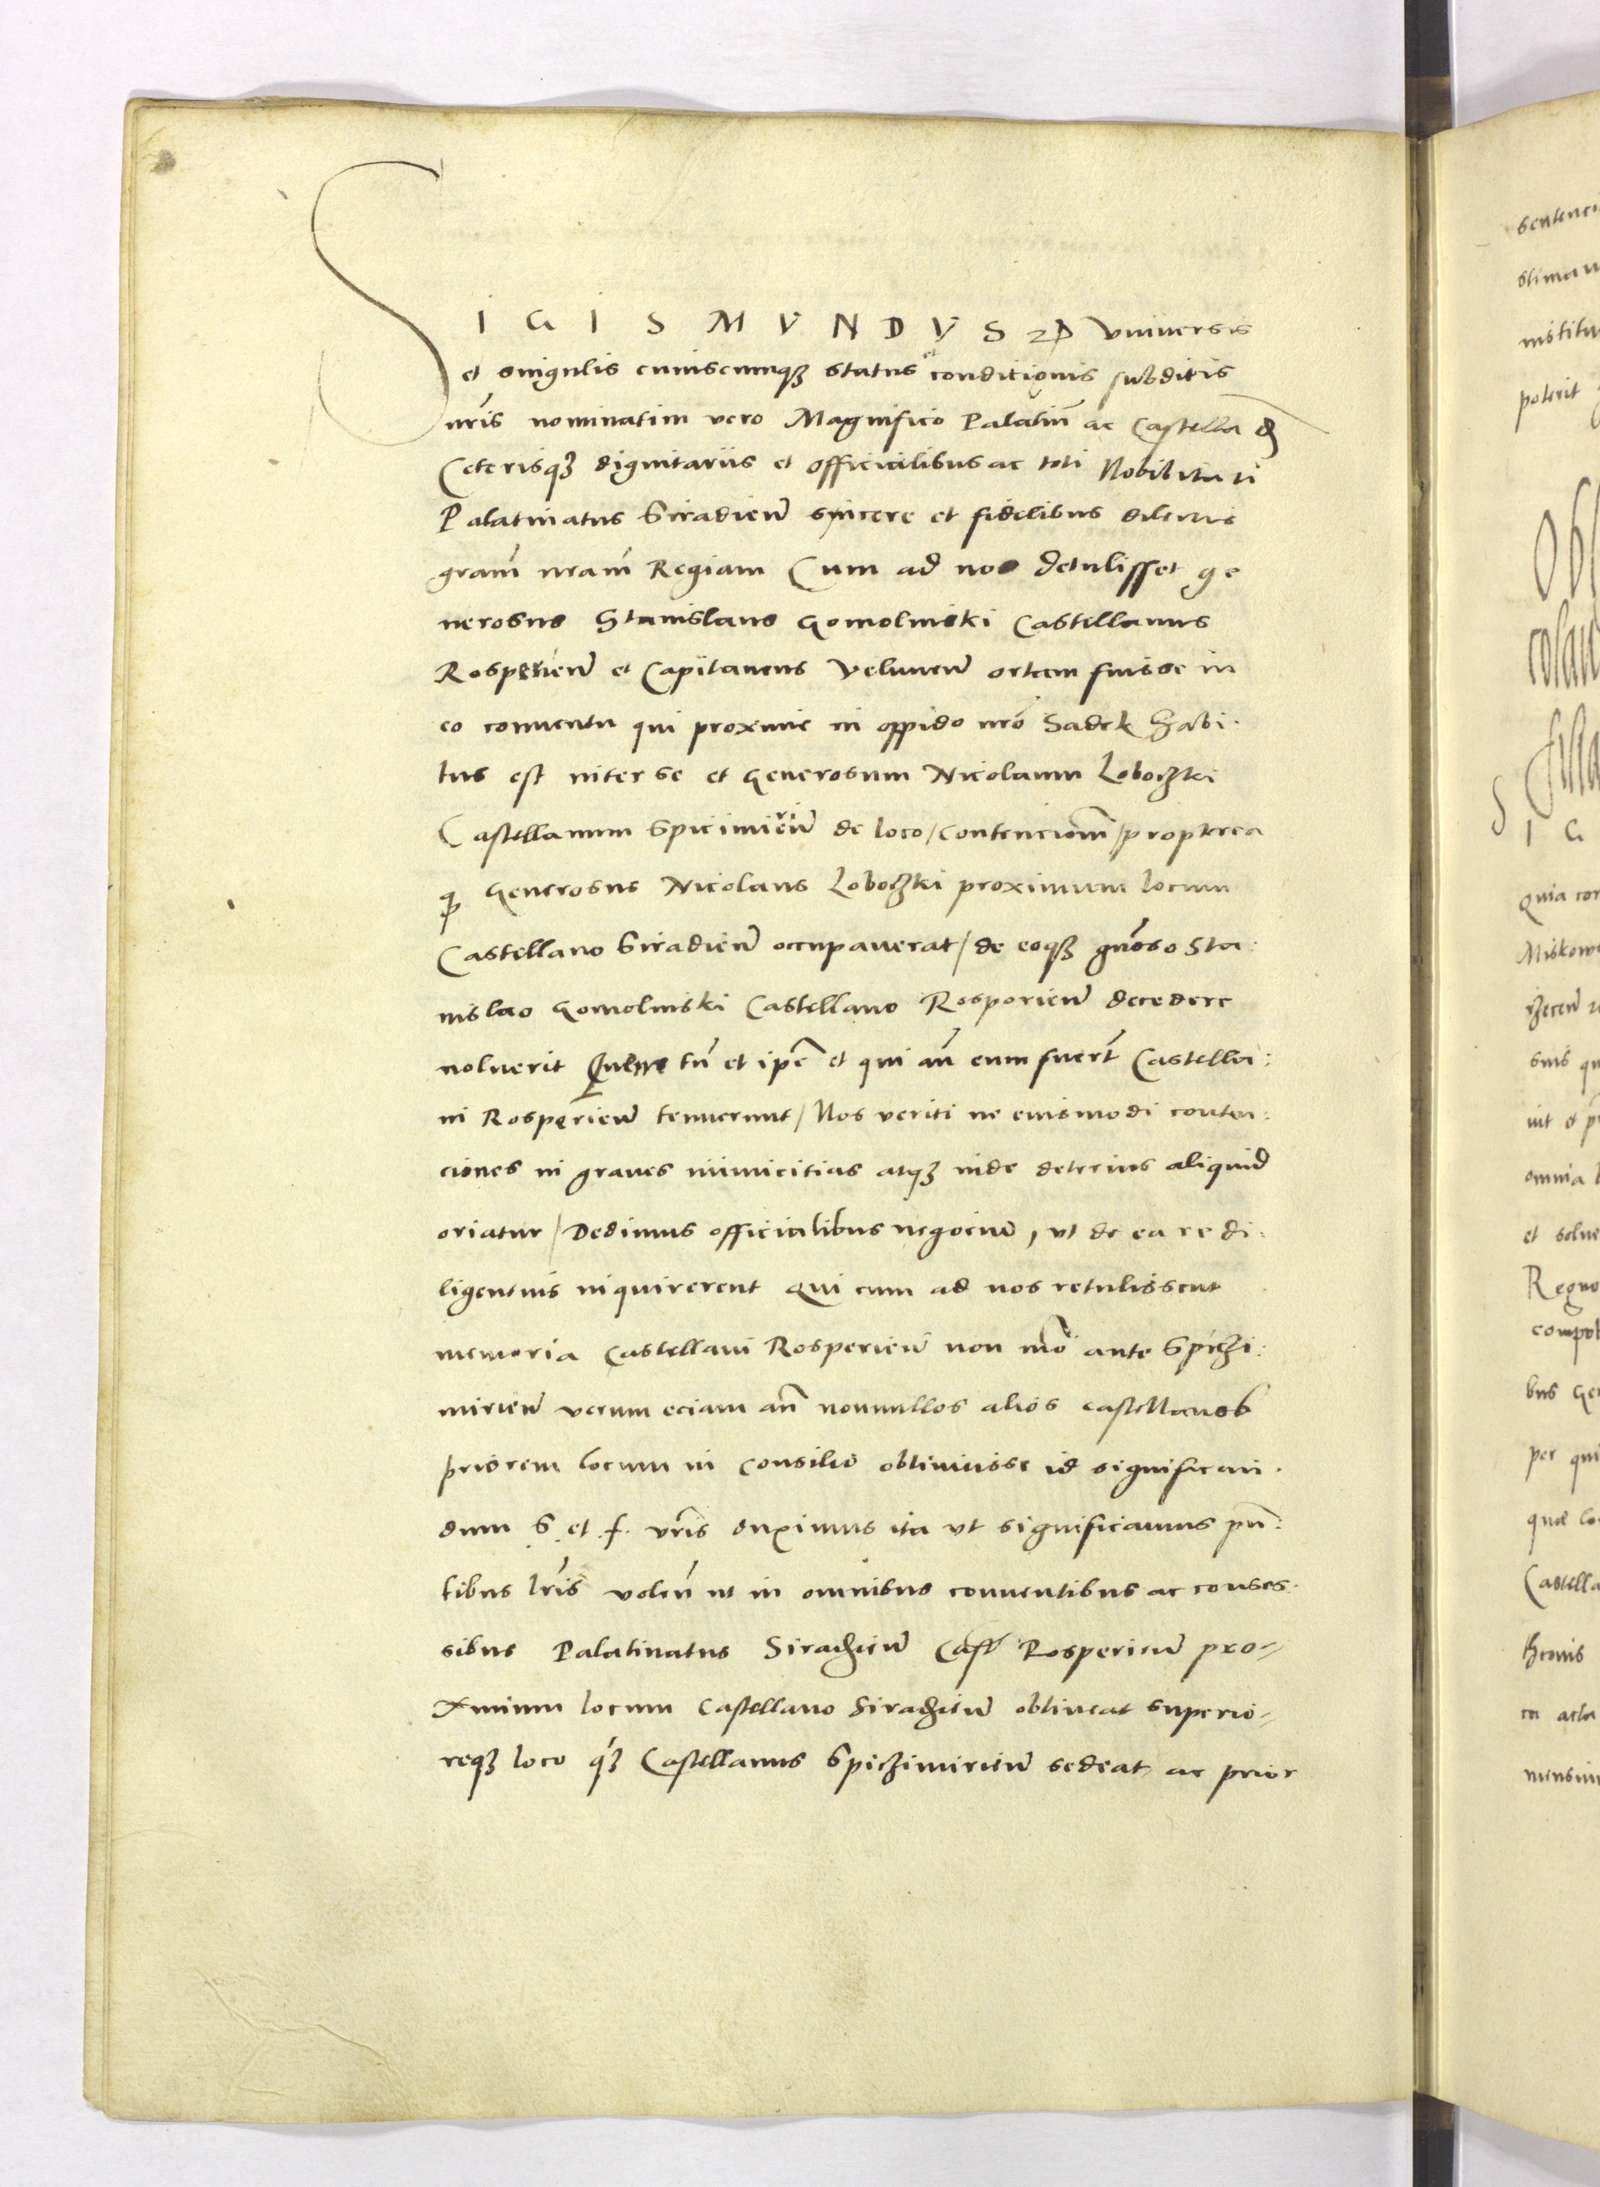 SIGISMVNDVS 2D Vniversis
et singulis cuiuscumqȝ status et conditionis subditis
nr̃is nominatim vero Magnifico Palatiñ ac Castella &
Ceterisqȝ dignitariis et officialibus ac toti Nobilitati
Palatinatus Siradieñ syncere et fidelibus dilectis
gram̃ nram̃ Regiam Cum ad nos detulisset ge
nerosus Stanislaus Gomolinski Castellanus
Rosperieñ et Capitaneus Veluneñ ortam fuisse in
eo conventu qui proxime in oppido nr̃o Sadek habi-
tus est inter se et Generosum Nicolaum Loboczki
Castellanum Spicimirieñ de loco / contencionem̃ / propterea
qp Generosus Nicolaus Loboczki proximum locum
Castellano Siradieñ occupaverat / de eoqȝ gnõso Sta:
nislao Gomolinski Castellano Rosporieñ decedere
noluerit Quem tñ et ipe͂ et qui añ eum fuer̃t Castella:
ni Rosperieñ tenuerunt / Nos veriti ne eiusmodi conten:
ciones in graves inimicitias atqȝ inde deterius aliquid
oriatur / Dedimus officialibus negocium̃, vt de ea re di:
ligentius inquirerent Qui cum ad nos retulissent
memoria Castellani Rosperieñ non mõ ante Spiczi:
mirieñ verum eciam añ nonnullos alios castellanos
priorem locum in consilio obtinuisse id significan-
dum S. et f. vr̃is duximus ita vt significamus pñ:
tibus lr̃is voleñ ut in omnibus conventibus ac conses-
sibus Palatinatus Siradzieñ Casť Rosperieñ pro-
ximum locum Castellano Siradzieñ obtineat superio-
reqȝ loco qȝ Castellanus Spiczimirieñ sedeat ac prior
sentenci
stimav
institu
poterit
I G
quia con
Miskow
rzeceñ
suis qu
vit et p
omnia
et solve
Regno
compot
bus Ge
per qui
quæ lo
Castella
ca acta
mensiu